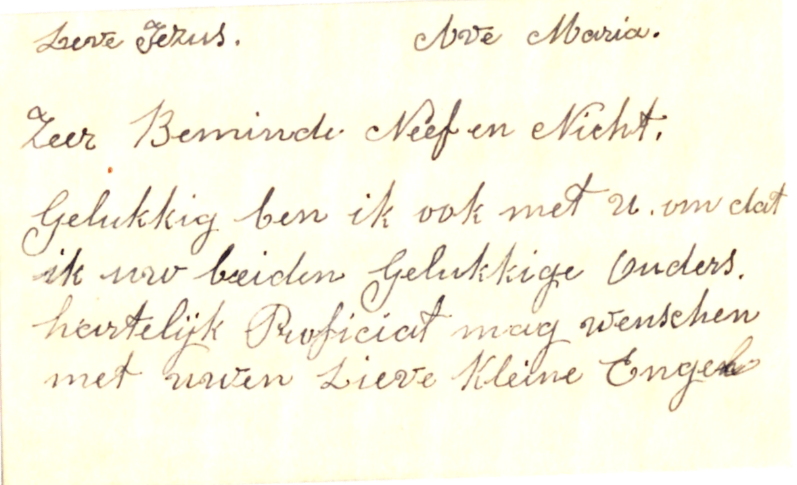 Leve Jezus. Ave Maria.
Zeer Beminde Neef en Nicht.
Gelukkig ben ik ook met u. om dat
ik uw beiden Gelukkige Ouders.
hartelijk Proficiat mag wenschen
met uwen Lieve Kleine Engel